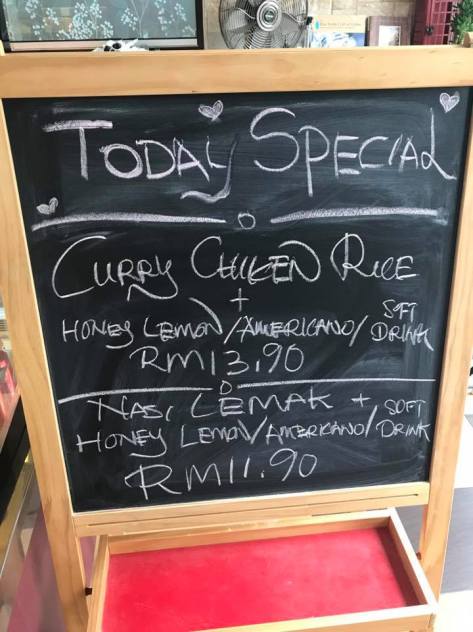 TODAY SPECIAL
CURRY CHICKEN RICE
+
HONEY LEMON/AMERICANO/ SOFT DRINK
RM13.90
NASI LEMAK +
HONEY LEMON/AMERICANO/ SOFT DRINK
RM11.90